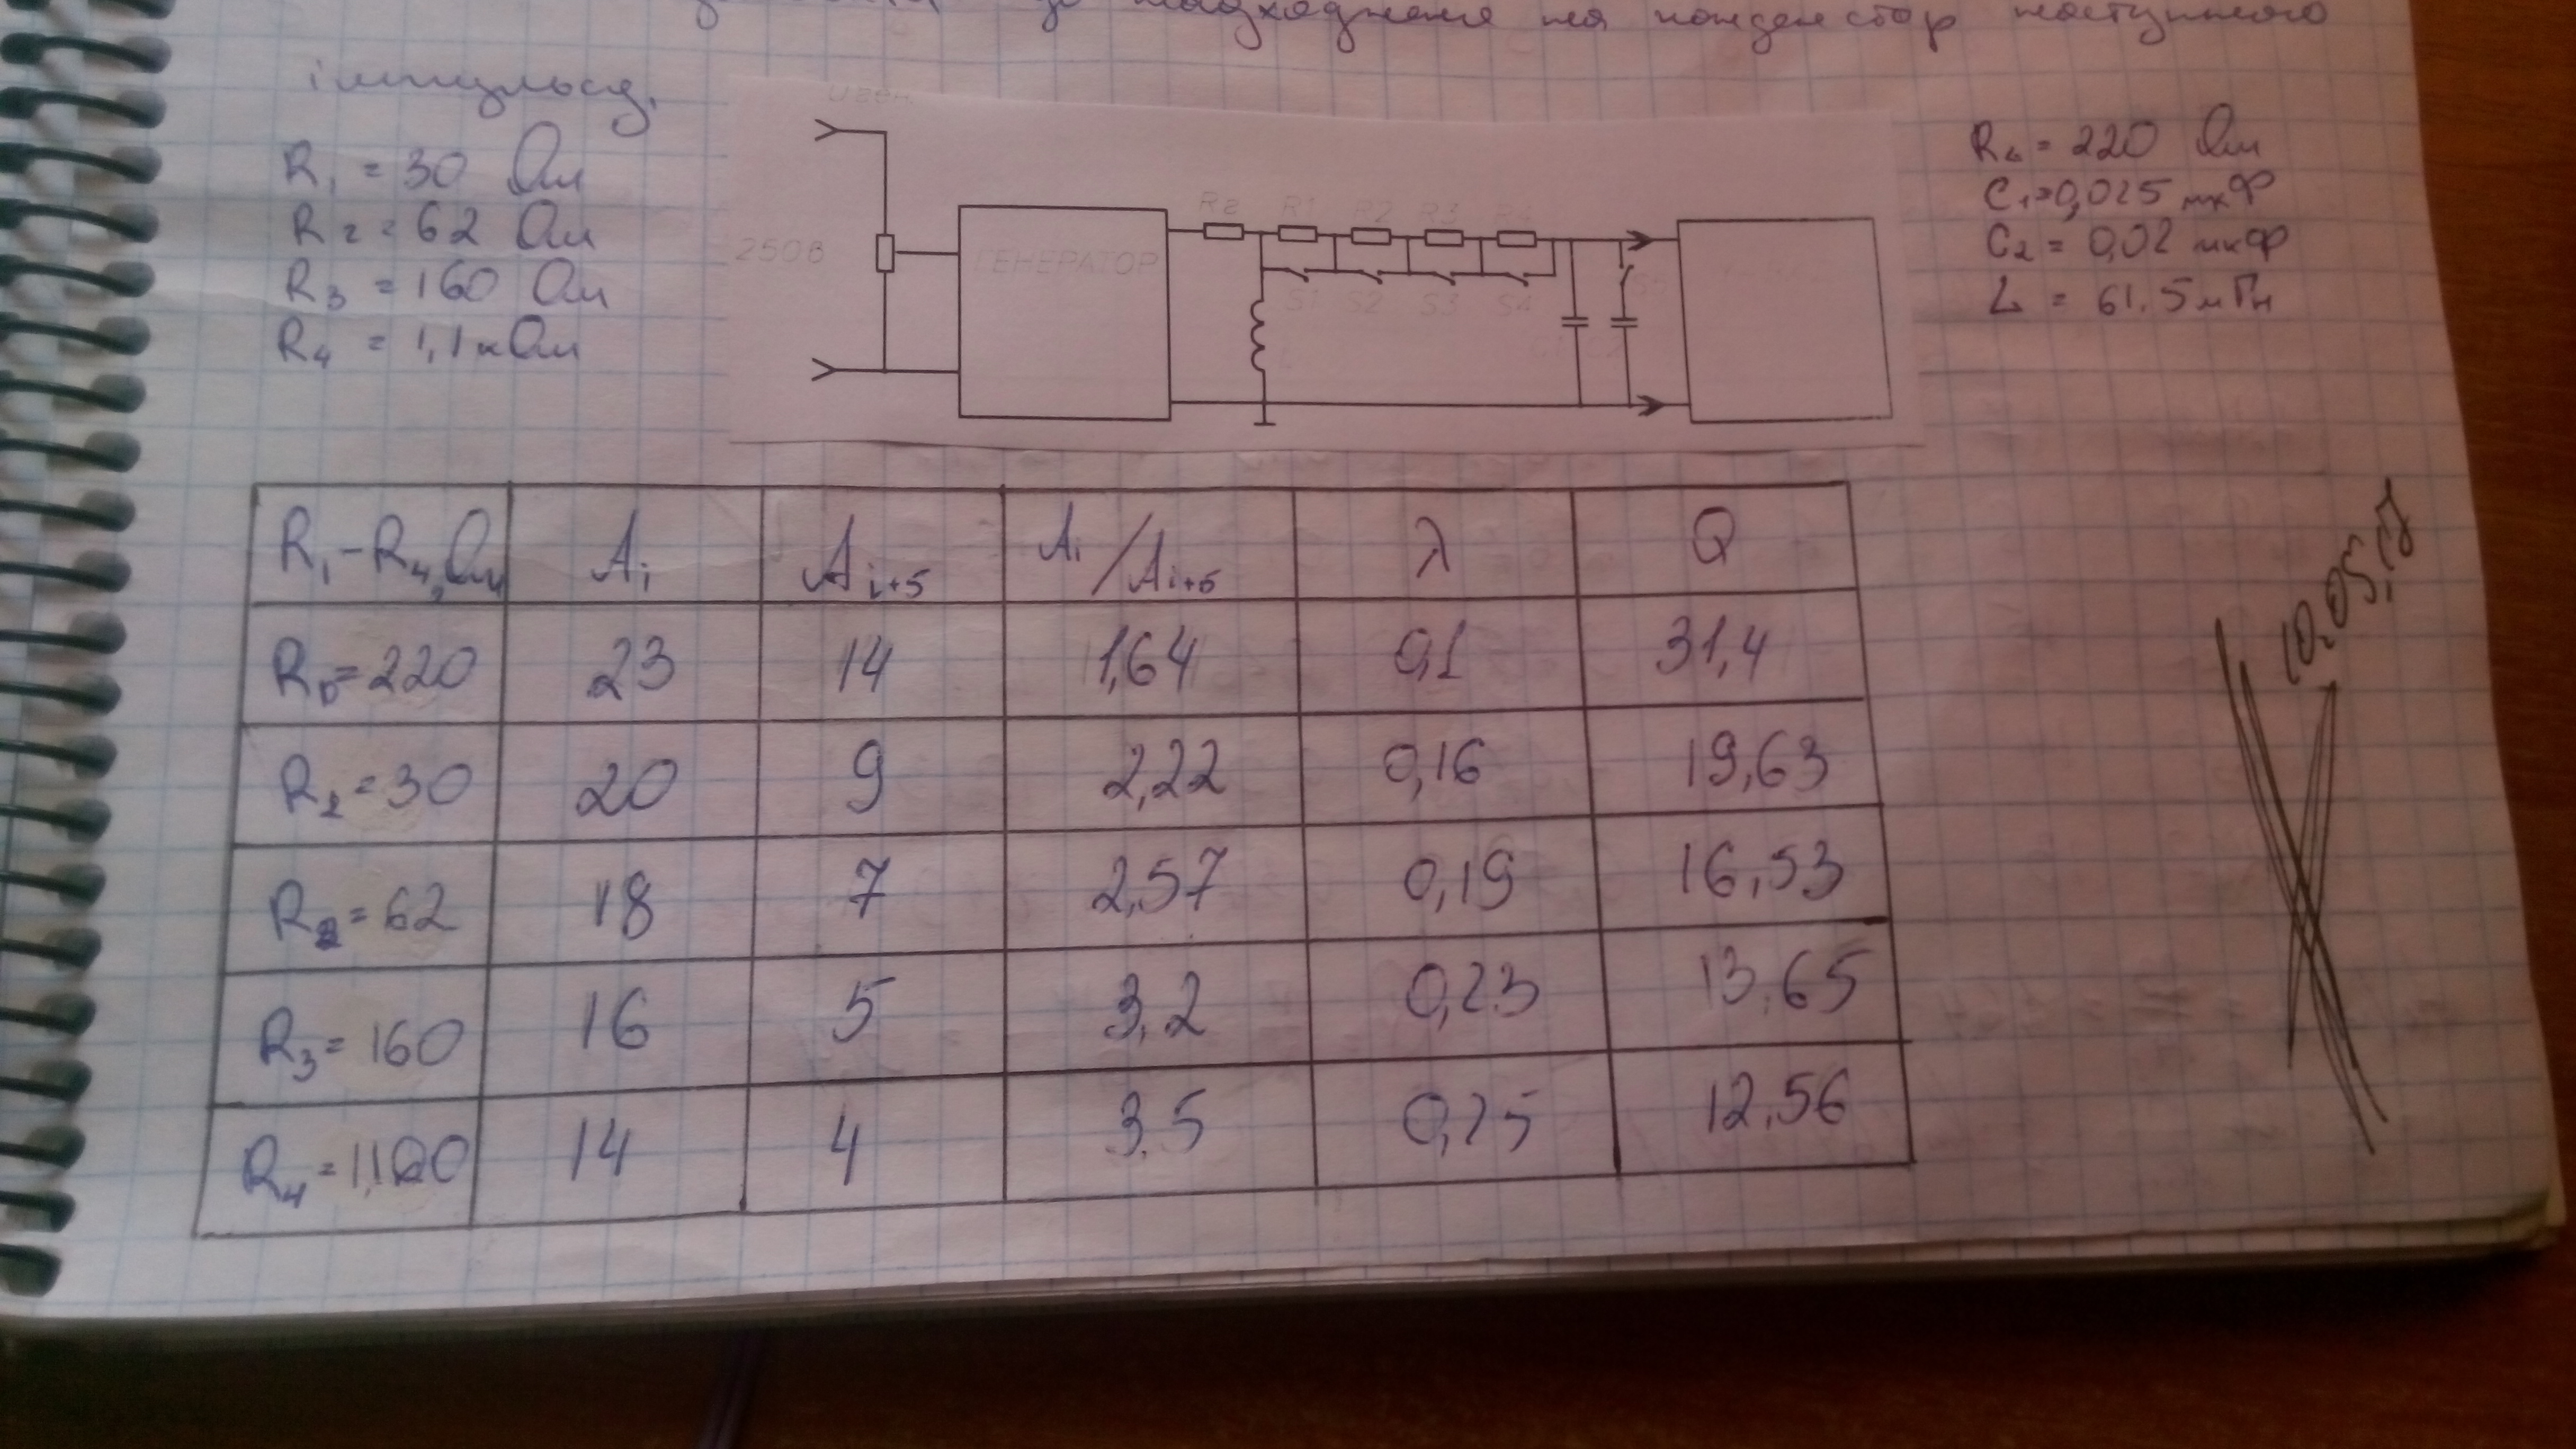 надходження на конденсатор наступного
імпульсу.
R₁ = 30 Ом
R₂ = 62 Ом
R₃ = 160 Ом
R₄ = 1,1 кОм
250В
ГЕНЕРАТОР
Rг R1 R2 R3 R4
S1 S2 S3 S4
C2
= 220 Ом
C₁=0,025 мкФ
C₂ = 0,02 мкФ
L = 61.5 мГн
R₁-R₄, Ом Aᵢ Aᵢ₊₅ Aᵢ/Aᵢ₊₅ λ Q
= 220 23 14 1,64 0,1 31,4
= 30 20 9 2,22 0,16 19,63
R₂ = 62 18 7 2,57 0,19 16,53
R₃ = 160 16 5 3,2 0,23 13,65
R₄ = 14 4 3,5 0,25 12,56